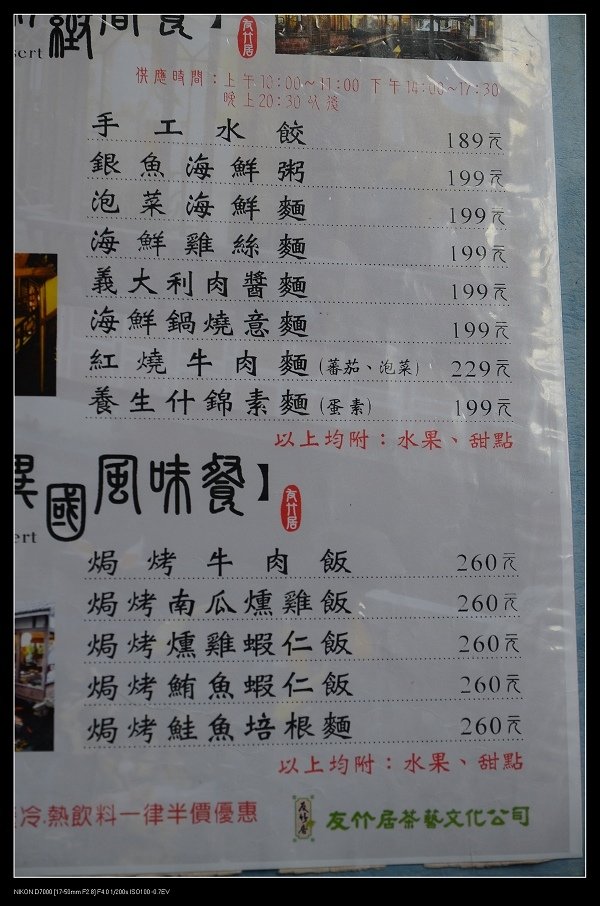 樹簡餐】
友竹居
sert
供應時間：上午10:00～11:00 下午14:00～17:30
晚上20:30以後
手工水餃 189元
銀魚海鮮粥 199元
泡菜海鮮麵 199元
海鮮雞絲麵 199元
義大利肉醬麵 199元
海鮮鍋燒意麵 199元
紅燒牛肉麵(蕃茄、泡菜) 229元
養生什錦素麵(蛋素) 199元
以上均附：水果、甜點
異國風味餐】
友竹居
ert
焗烤牛肉飯 260元
焗烤南瓜燻雞飯 260元
焗烤燻雞蝦仁飯 260元
焗烤鮪魚蝦仁飯 260元
焗烤鮭魚培根麵 260元
以上均附：水果、甜點
冷.熱飲料一律半價優惠
友竹居
友竹居茶藝文化公司
NIKON D7000 [17-50mm F2.8] F4.0 1/200s ISO100 -0.7EV